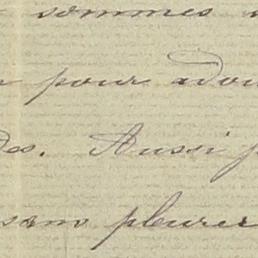 sommes
pour adou
des. Aussi p
sans pleurer